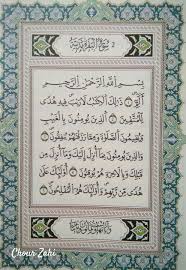 2 سورة البقرة مدنية
بِسْمِ ٱللَّهِ ٱلرَّحْمَٰنِ ٱلرَّحِيمِ
الٓمٓ ۝١ ذَٰلِكَ ٱلْكِتَٰبُ لَا رَيْبَ ۛ فِيهِ ۛ هُدًى
لِّلْمُتَّقِينَ ۝٢ ٱلَّذِينَ يُؤْمِنُونَ بِٱلْغَيْبِ
وَيُقِيمُونَ ٱلصَّلَوٰةَ وَمِمَّا رَزَقْنَٰهُمْ يُنفِقُونَ ۝٣
وَٱلَّذِينَ يُؤْمِنُونَ بِمَآ أُنزِلَ إِلَيْكَ وَمَآ أُنزِلَ مِن
قَبْلِكَ وَبِٱلْءَاخِرَةِ هُمْ يُوقِنُونَ ۝٤ أُو۟لَٰٓئِكَ عَلَىٰ
هُدًى مِّن رَّبِّهِمْ ۖ وَأُو۟لَٰٓئِكَ هُمُ ٱلْمُفْلِحُونَ ۝٥
Chour Zaki